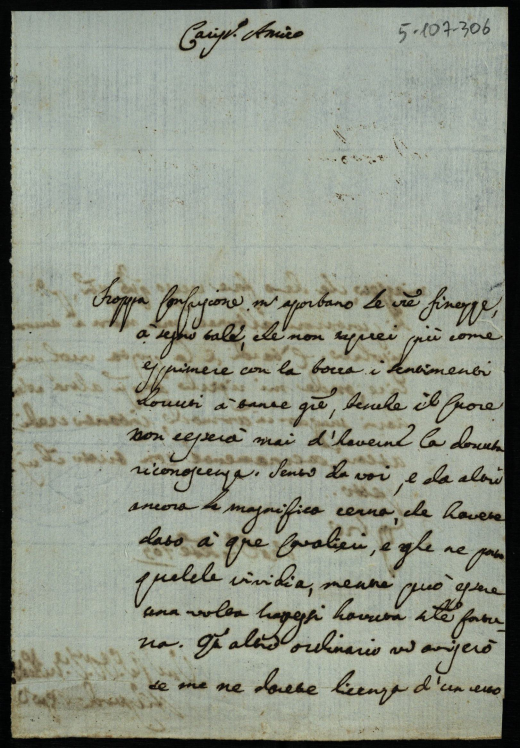 5-107-306
Cariss.º Amico
Troppa confusione m'aportano le vrē finezze,
à segno tale, che non saprei più come
esprimere con la bocca i sentimenti
dovuti à tante grē, benche il Cuore
non cesserà mai d'haverne la dovuta
riconoscenza. Sento da voi, e da altri
ancora la magnifica cena, che havete
dato à que Cavalieri, e gle ne porto
qualche invidia, mentre può essere
una volta havessi havuta a fortu-
na. Qº altro ordinario vi aviserò
se me ne darete licenza d'un certo